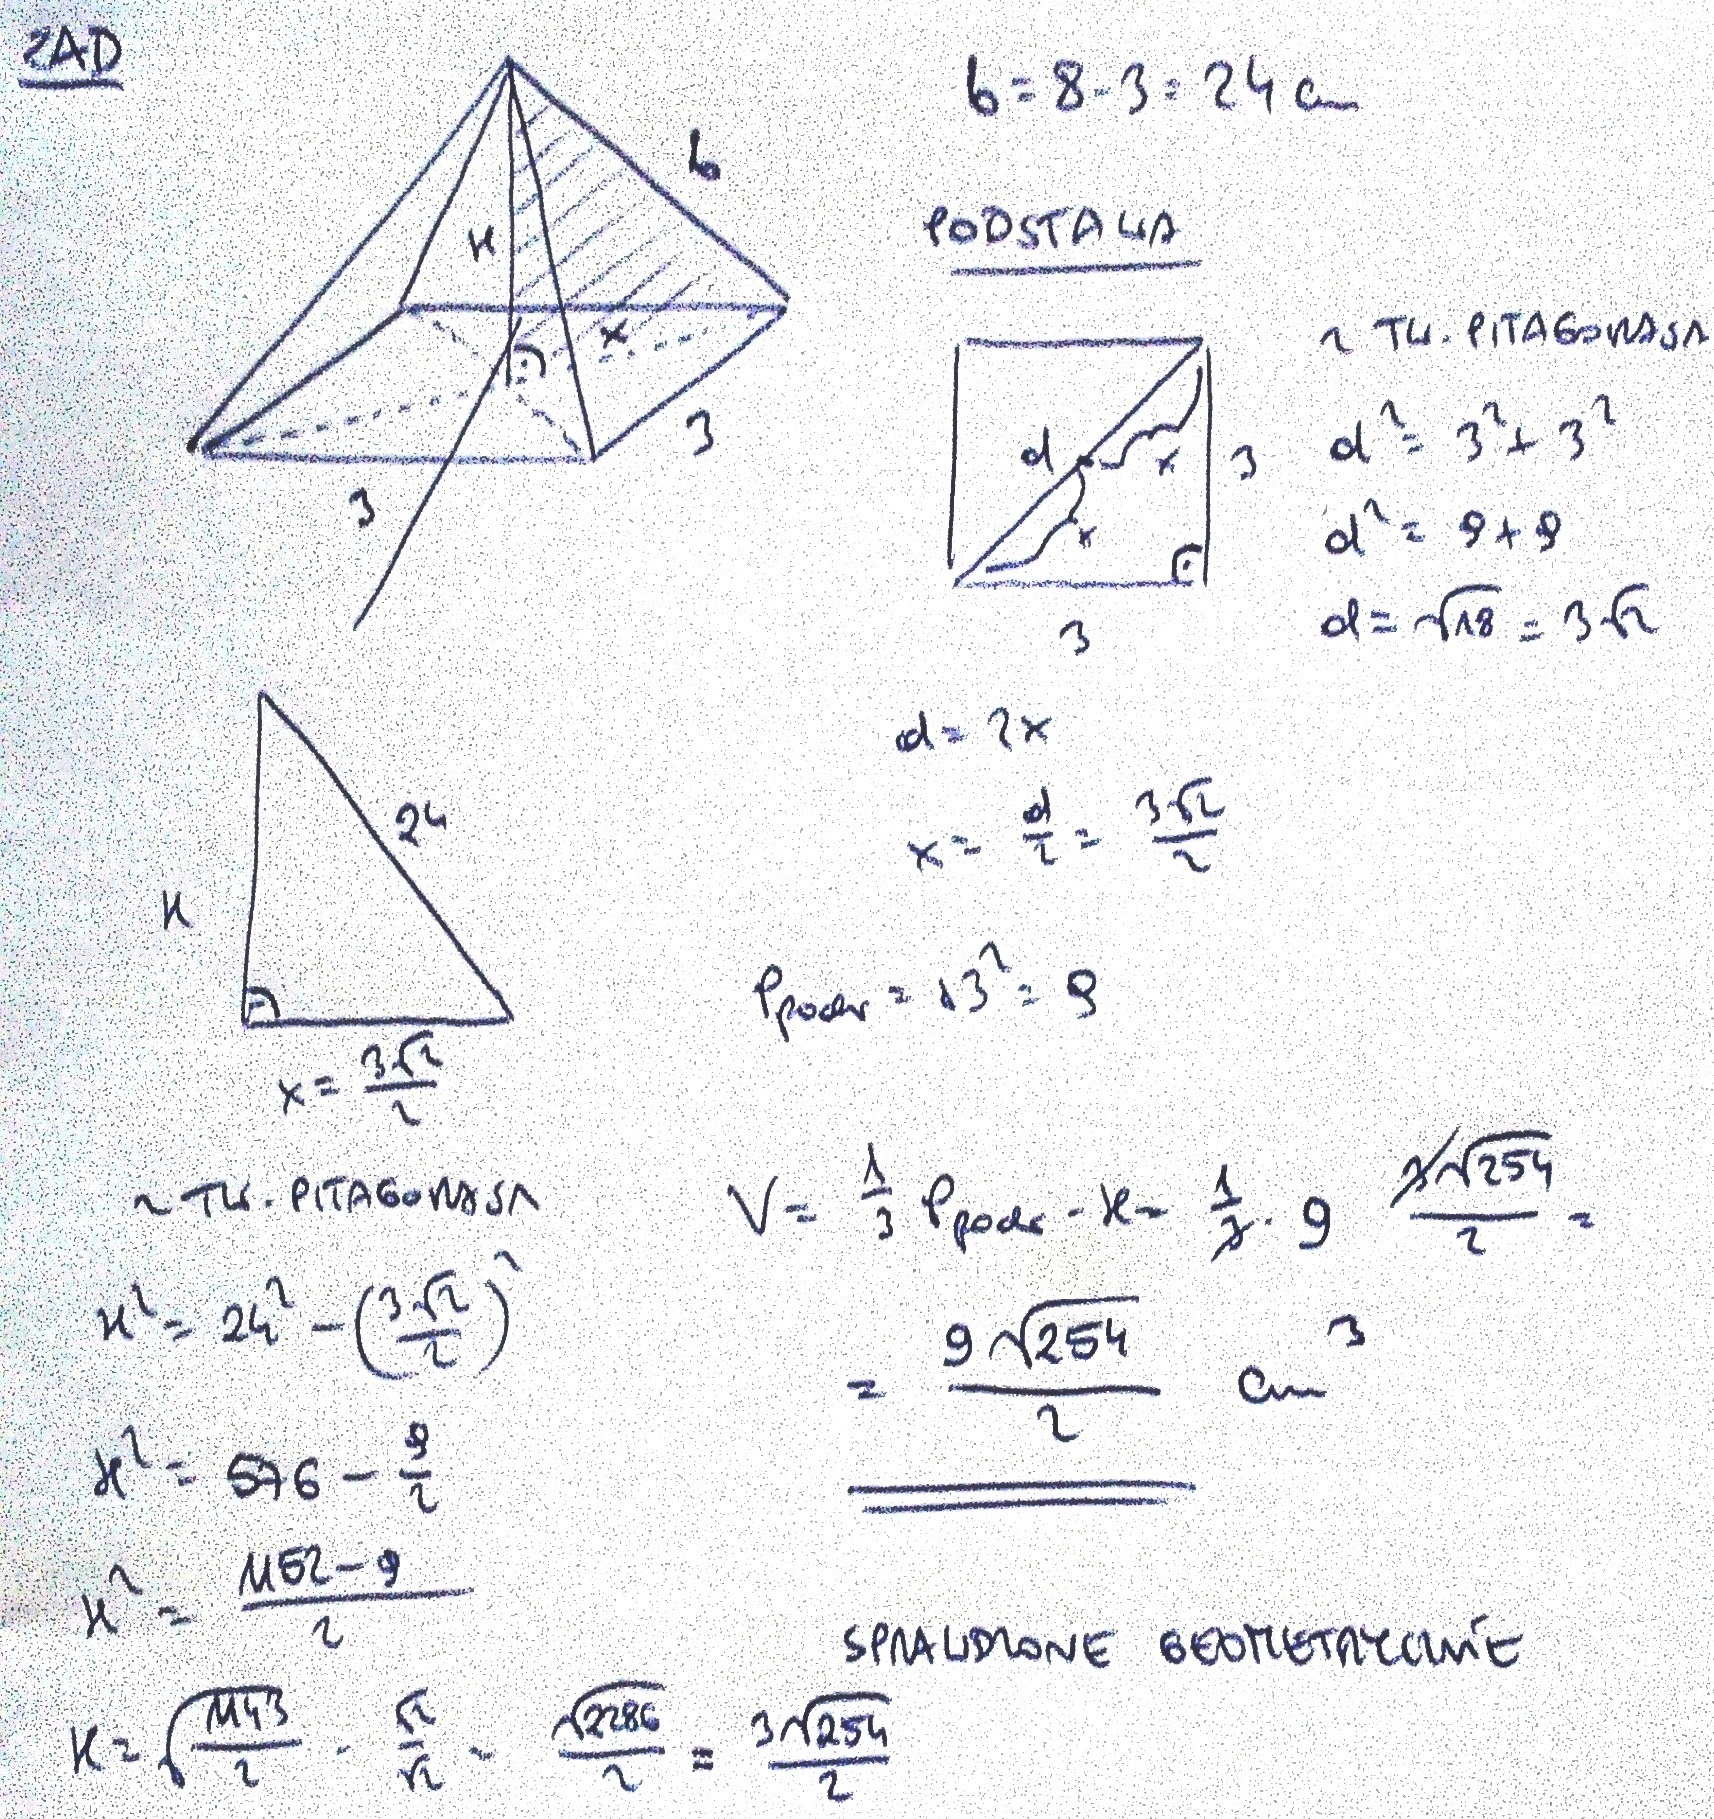 ZAD
b = 8·3 = 24 cm
b
H
x
3
3
PODSTAWA
d
x
x
3
3
z TW. PITAGORASA
d² = 3² + 3²
d² = 9 + 9
d = √18 = 3√2
d = 2x
x = d/2 = 3√2/2
H
24
x = 3√2/2
P_podst = 3² = 9
z TW. PITAGORASA
H² = 24² − (3√2/2)²
H² = 576 − 9/2
H² = (1152 − 9)/2
H = √(1143/2) · √2/√2 = √2286/2 = 3√254/2
V = 1/3 P_podst · H = 1/3 · 9 3√254/2 =
= 9√254/2 cm³
SPRAWDZONE GEOMETRYCZNIE